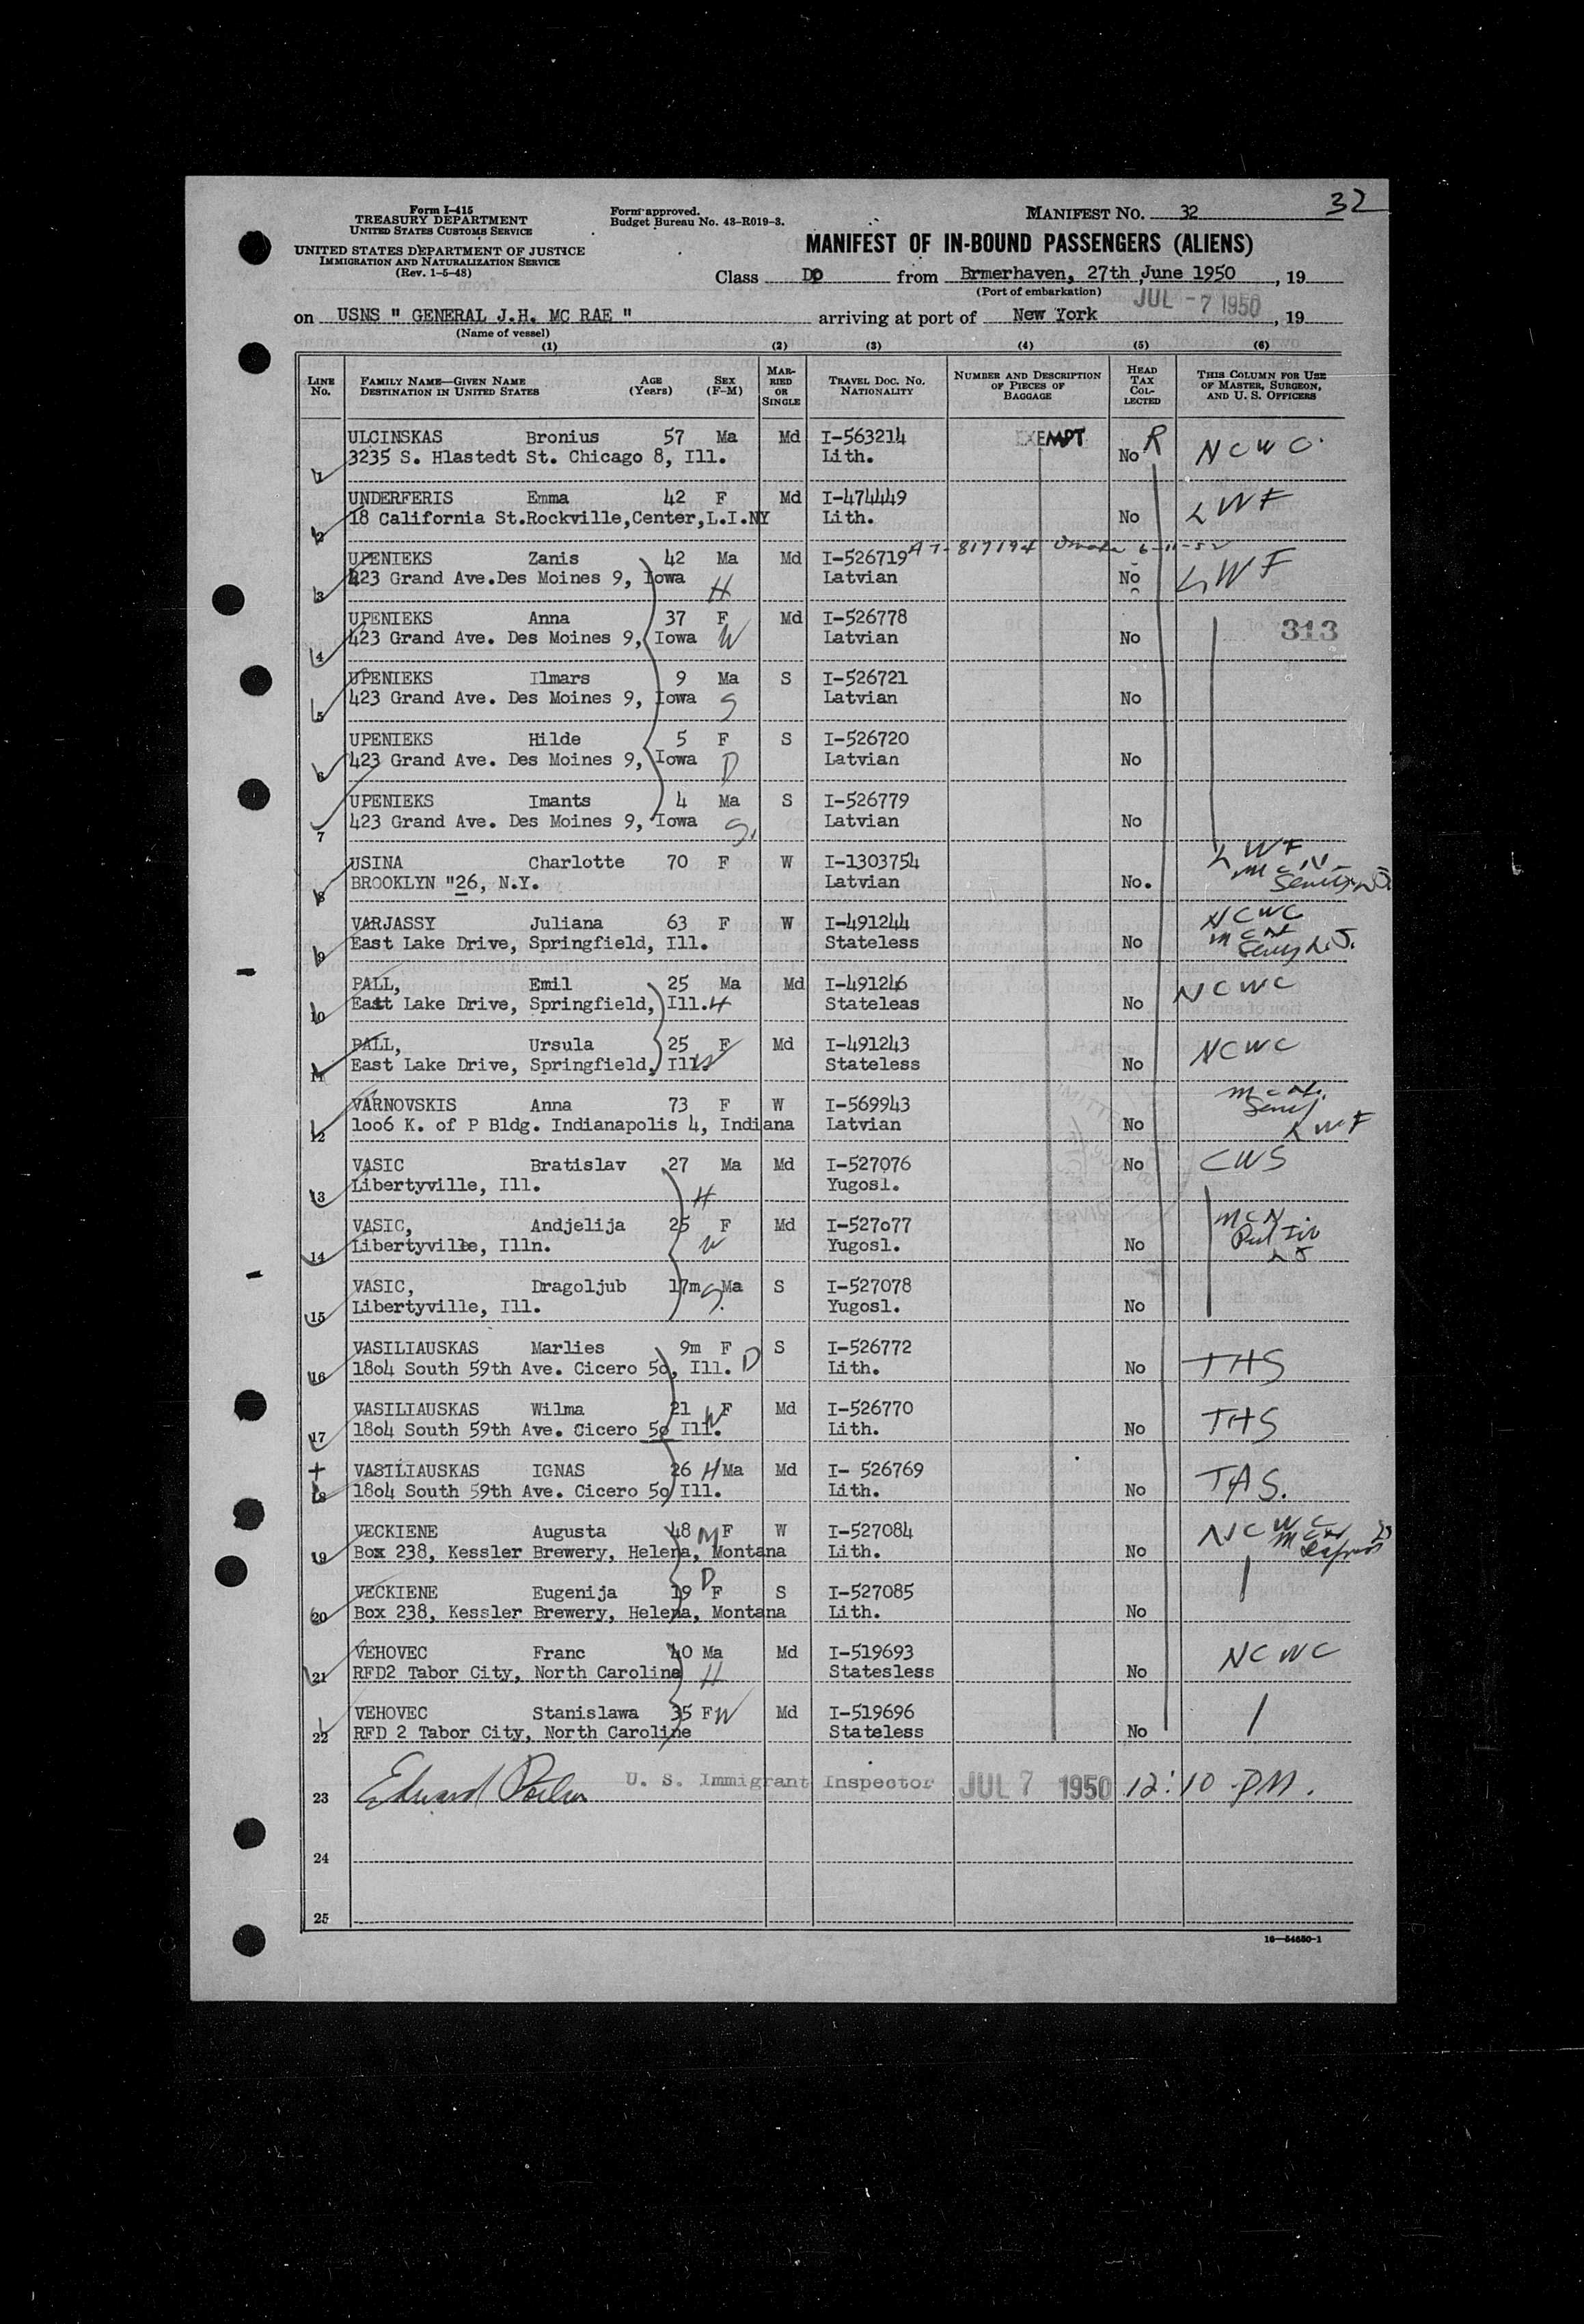 Form I-415
TREASURY DEPARTMENT
UNITED STATES CUSTOMS SERVICE
UNITED STATES DEPARTMENT OF JUSTICE
IMMIGRATION AND NATURALIZATION SERVICE
(Rev. 1-5-48)
Form approved.
Budget Bureau No. 43-R019-3.
MANIFEST NO. 32
32
MANIFEST OF IN-BOUND PASSENGERS (ALIENS)
Class DP from Brmerhaven, 27th June 1950, 19
(Port of embarkation)
JUL -7 1950
on USNS " GENERAL J.H. MC RAE " arriving at port of New York, 19
(Name of vessel)
(1) (2) (3) (4) (5) (6)
LINE NO. FAMILY NAME—GIVEN NAME DESTINATION IN UNITED STATES AGE (Years) SEX (F-M) MARRIED OR SINGLE TRAVEL DOC. NO. NATIONALITY NUMBER AND DESCRIPTION OF PIECES OF BAGGAGE HEAD TAX COLLECTED THIS COLUMN FOR USE OF MASTER, SURGEON, AND U. S. OFFICERS
ULCINSKAS Bronius 57 Ma Md I-563214 EXEMPT R NCWC
1 3235 S. Hlastedt St. Chicago 8, Ill. Lith. No
UNDERFERIS Emma 42 F Md I-474449 LWF
2 18 California St.Rockville,Center,L.I.NY Lith. No
UPENIEKS Zanis 42 Ma Md I-526719 6-11-52
3 423 Grand Ave.Des Moines 9, Iowa H Latvian No LWF
UPENIEKS Anna 37 F Md I-526778
4 423 Grand Ave. Des Moines 9, Iowa W Latvian No 313
UPENIEKS Ilmars 9 Ma S I-526721
5 423 Grand Ave. Des Moines 9, Iowa S Latvian No
UPENIEKS Hilde 5 F S I-526720
6 423 Grand Ave. Des Moines 9, Iowa D Latvian No
UPENIEKS Imants 4 Ma S I-526779
7 423 Grand Ave. Des Moines 9, Iowa S. Latvian No
USINA Charlotte 70 F W I-1303754 LWF
8 BROOKLYN "26, N.Y. Latvian No.
VARJASSY Juliana 63 F W I-491244 NCWC
9 East Lake Drive, Springfield, Ill. Stateless No
PALL, Emil 25 Ma Md I-491246 NCWC
10 East Lake Drive, Springfield, Ill. H Stateleas No
PALL, Ursula 25 F Md I-491243 NCWC
11 East Lake Drive, Springfield, Ill. W Stateless No
VARNOVSKIS Anna 73 F W I-569943
12 1oo6 K. of P Bldg. Indianapolis 4, Indiana Latvian No LWF
VASIC Bratislav 27 Ma Md I-527076 No CWS
13 Libertyville, Ill. H Yugosl.
VASIC, Andjelija 25 F Md I-527o77
14 Libertyville, Illn. W Yugosl. No
VASIC, Dragoljub 17m S. Ma S I-527078
15 Libertyville, Ill. Yugosl. No
VASILIAUSKAS Marlies 9m F S I-526772
16 18o4 South 59th Ave. Cicero 5o, Ill. D Lith. No THS
VASILIAUSKAS Wilma 21 W F Md I-526770
17 18o4 South 59th Ave. Cicero 5o Ill. Lith. No THS
VASILIAUSKAS IGNAS 26 H Ma Md I- 526769
18 18o4 South 59th Ave. Cicero 5o Ill. Lith. No
VECKIENE Augusta 48 M F W I-527084 NCWC
19 Box 238, Kessler Brewery, Helena, Montana Lith. No
VECKIENE Eugenija 19 D F S I-527085
20 Box 238, Kessler Brewery, Helena, Montana Lith. No
VEHOVEC Franc 40 Ma Md I-519693 NCWC
21 RFD2 Tabor City, North Caroline H Statesless No
VEHOVEC Stanislawa 35 F W Md I-519696
22 RFD 2 Tabor City, North Caroline Stateless No
23 Edward U. S. Immigrant Inspector JUL 7 1950 12:10 PM.
24
25
16—54650-1